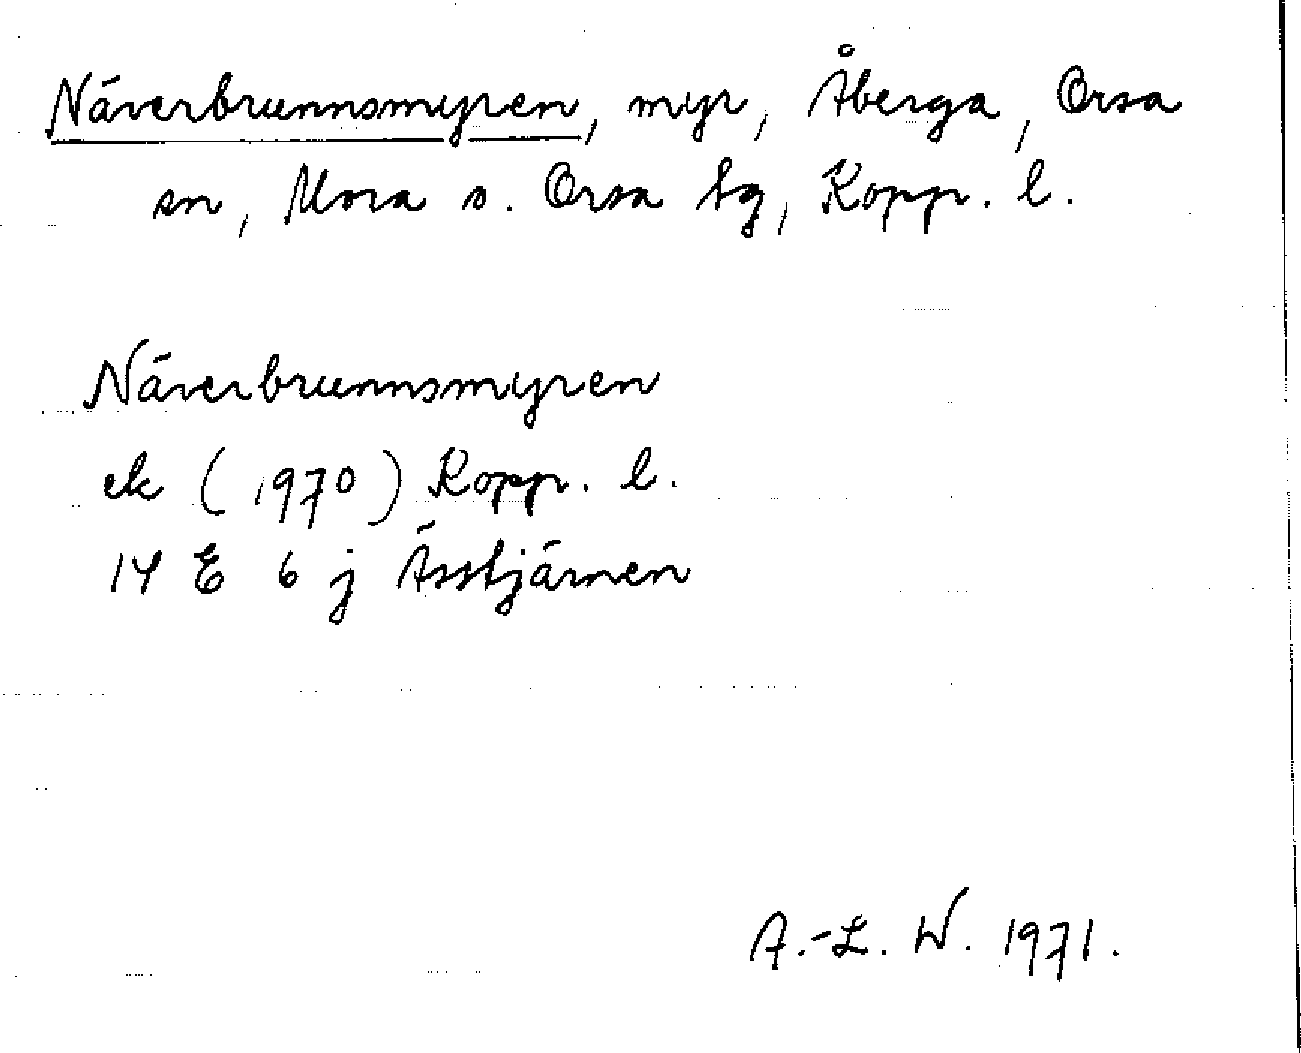 Näverbrunnsmyren, myr, Åberga, Orsa
sn, Mora o. Orsa tg, Kopp. l.
Näverbrunnsmyren
ek (1970) Kopp. l.
14 E 6 j Ässtjärnen
A.-L. W. 1971.